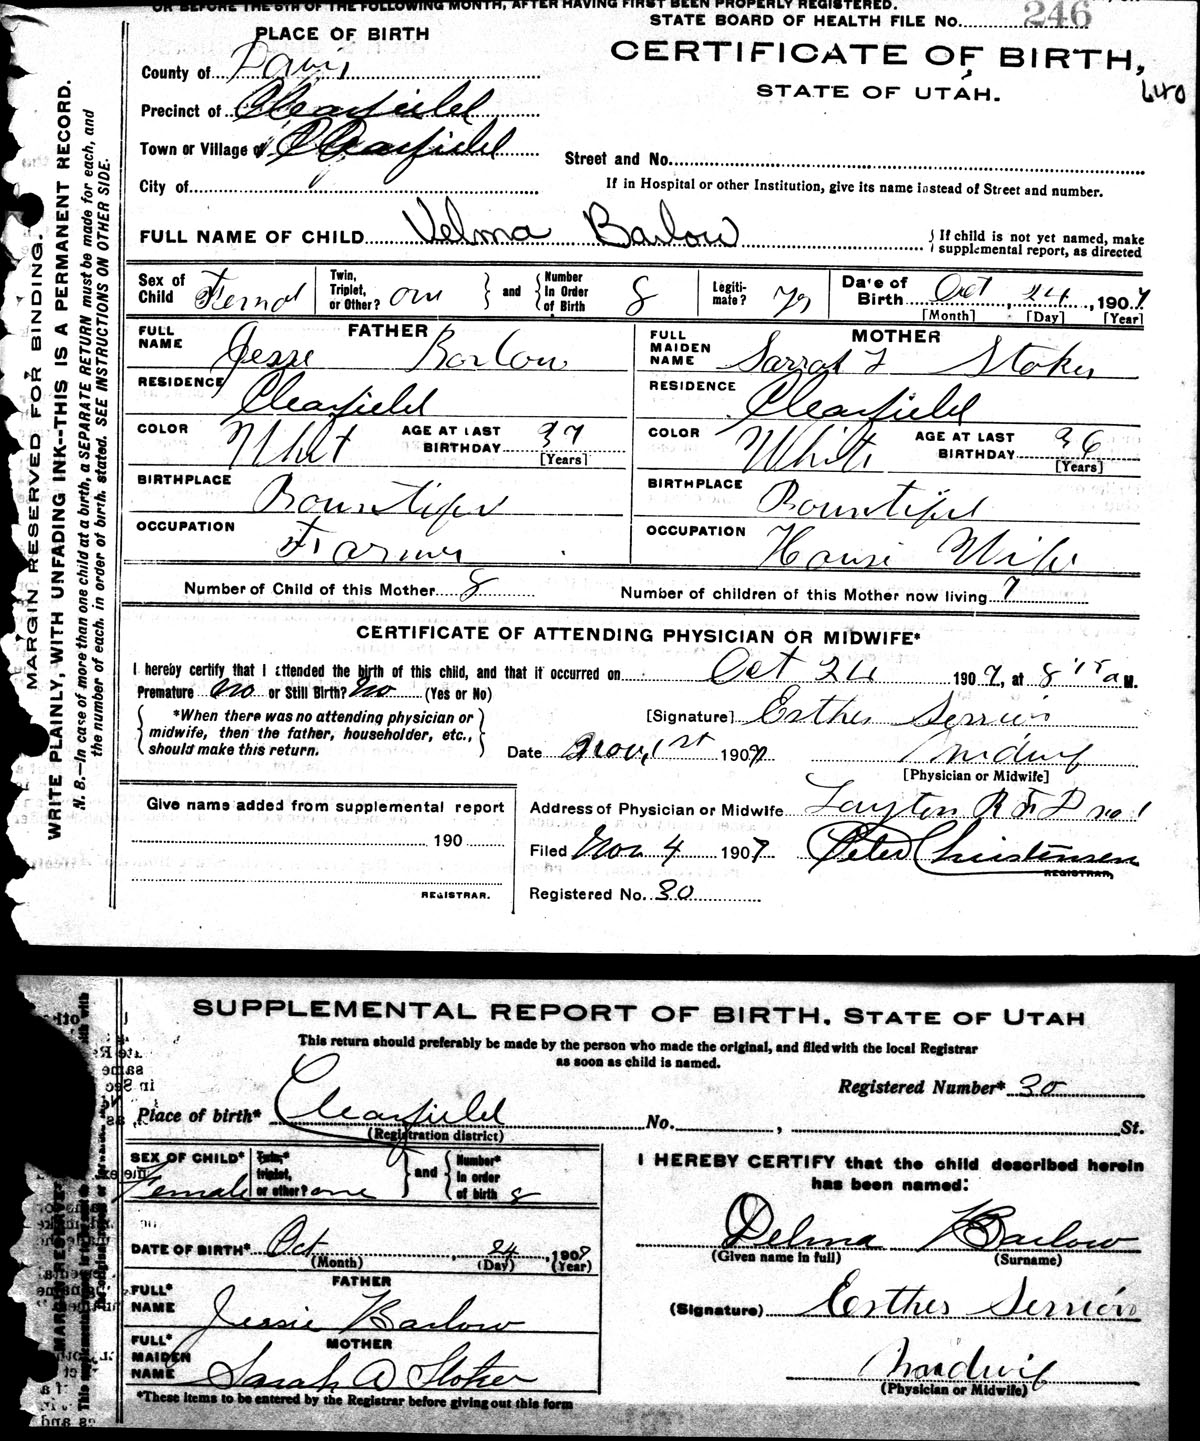 OR BEFORE THE 5TH OF THE FOLLOWING MONTH, AFTER HAVING FIRST BEEN PROPERLY REGISTERED.
STATE BOARD OF HEALTH FILE No. 246
PLACE OF BIRTH
CERTIFICATE OF BIRTH,
STATE OF UTAH.
640
County of Davis
Precinct of Clearfield
Town or Village of Clearfield
Street and No.
City of
If in Hospital or other Institution, give its name instead of Street and number.
FULL NAME OF CHILD Velma Barlow
If child is not yet named, make supplemental report, as directed
Sex of Child Femal
Twin, Triplet, or Other? one and Number In Order of Birth 8
Legitimate? Ys
Date of Birth Oct 24, 1907
[Month] [Day] [Year]
FATHER
FULL NAME Jesse Barlow
RESIDENCE Clearfield
COLOR Whit AGE AT LAST BIRTHDAY 37 [Years]
BIRTHPLACE Bountiful
OCCUPATION Farmer
MOTHER
FULL MAIDEN NAME Sarrah Stoker
RESIDENCE Clearfield
COLOR White AGE AT LAST BIRTHDAY 36 [Years]
BIRTHPLACE Bountiful
OCCUPATION House Wife
Number of Child of this Mother 8 Number of children of this Mother now living 7
CERTIFICATE OF ATTENDING PHYSICIAN OR MIDWIFE*
I hereby certify that I attended the birth of this child, and that it occurred on Oct 24 1907, at 8 a M.
Premature no or Still Birth? no (Yes or No)
*When there was no attending physician or midwife, then the father, householder, etc., should make this return.
[Signature] Esther
Date Nov, 1st 1907 Midwif
[Physician or Midwife]
Give name added from supplemental report
190
REGISTRAR.
Address of Physician or Midwife Layton R F D no 1
Filed Nov 4 1907 Peter Christensen
REGISTRAR,
Registered No. 30
MARGIN RESERVED FOR BINDING.
WRITE PLAINLY, WITH UNFADING INK--THIS IS A PERMANENT RECORD.
N. B.—In case of more than one child at a birth, a SEPARATE RETURN must be made for each, and
the number of each, in order of birth, stated. SEE INSTRUCTIONS ON OTHER SIDE.
SUPPLEMENTAL REPORT OF BIRTH, STATE OF UTAH
This return should preferably be made by the person who made the original, and filed with the local Registrar
as soon as child is named.
Registered Number* 30
Place of birth* Clearfield No. , St.
(Registration district)
SEX OF CHILD* Female
Twin,* triplet, or other? one and Number* In order of birth 8
DATE OF BIRTH* Oct, 24, 1907
(Month) (Day) (Year)
FATHER
FULL* NAME Jessie Barlow
MOTHER
FULL* MAIDEN NAME Sarah A Stoker
*These items to be entered by the Registrar before giving out this form
I HEREBY CERTIFY that the child described herein
has been named:
Delma Barlow
(Given name in full) (Surname)
(Signature) Esther
Midwif
(Physician or Midwife)